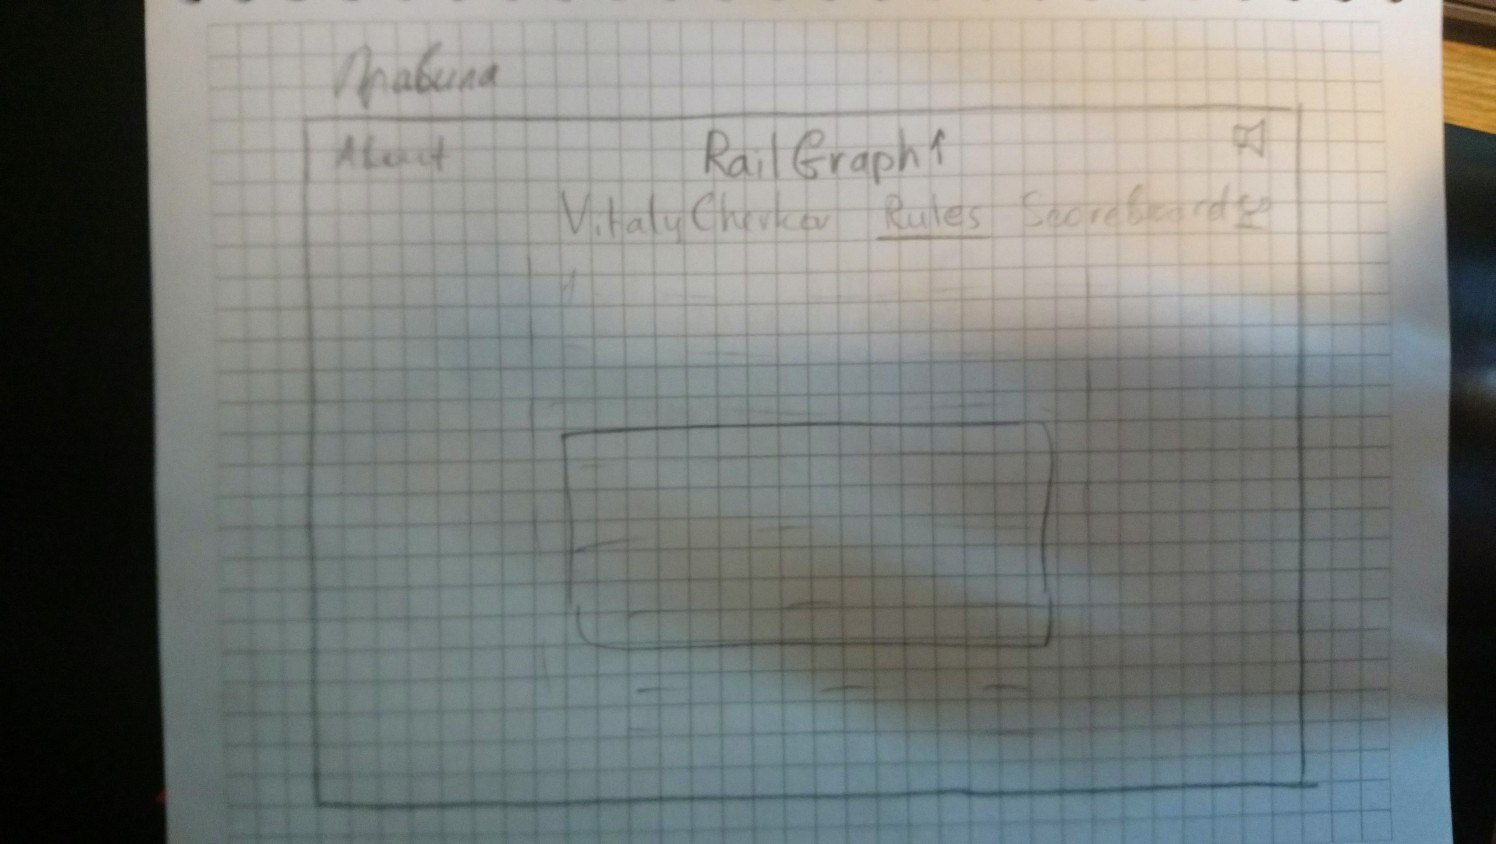 Правила
About RailGraph↑
Vitaly Rules Scoreboards